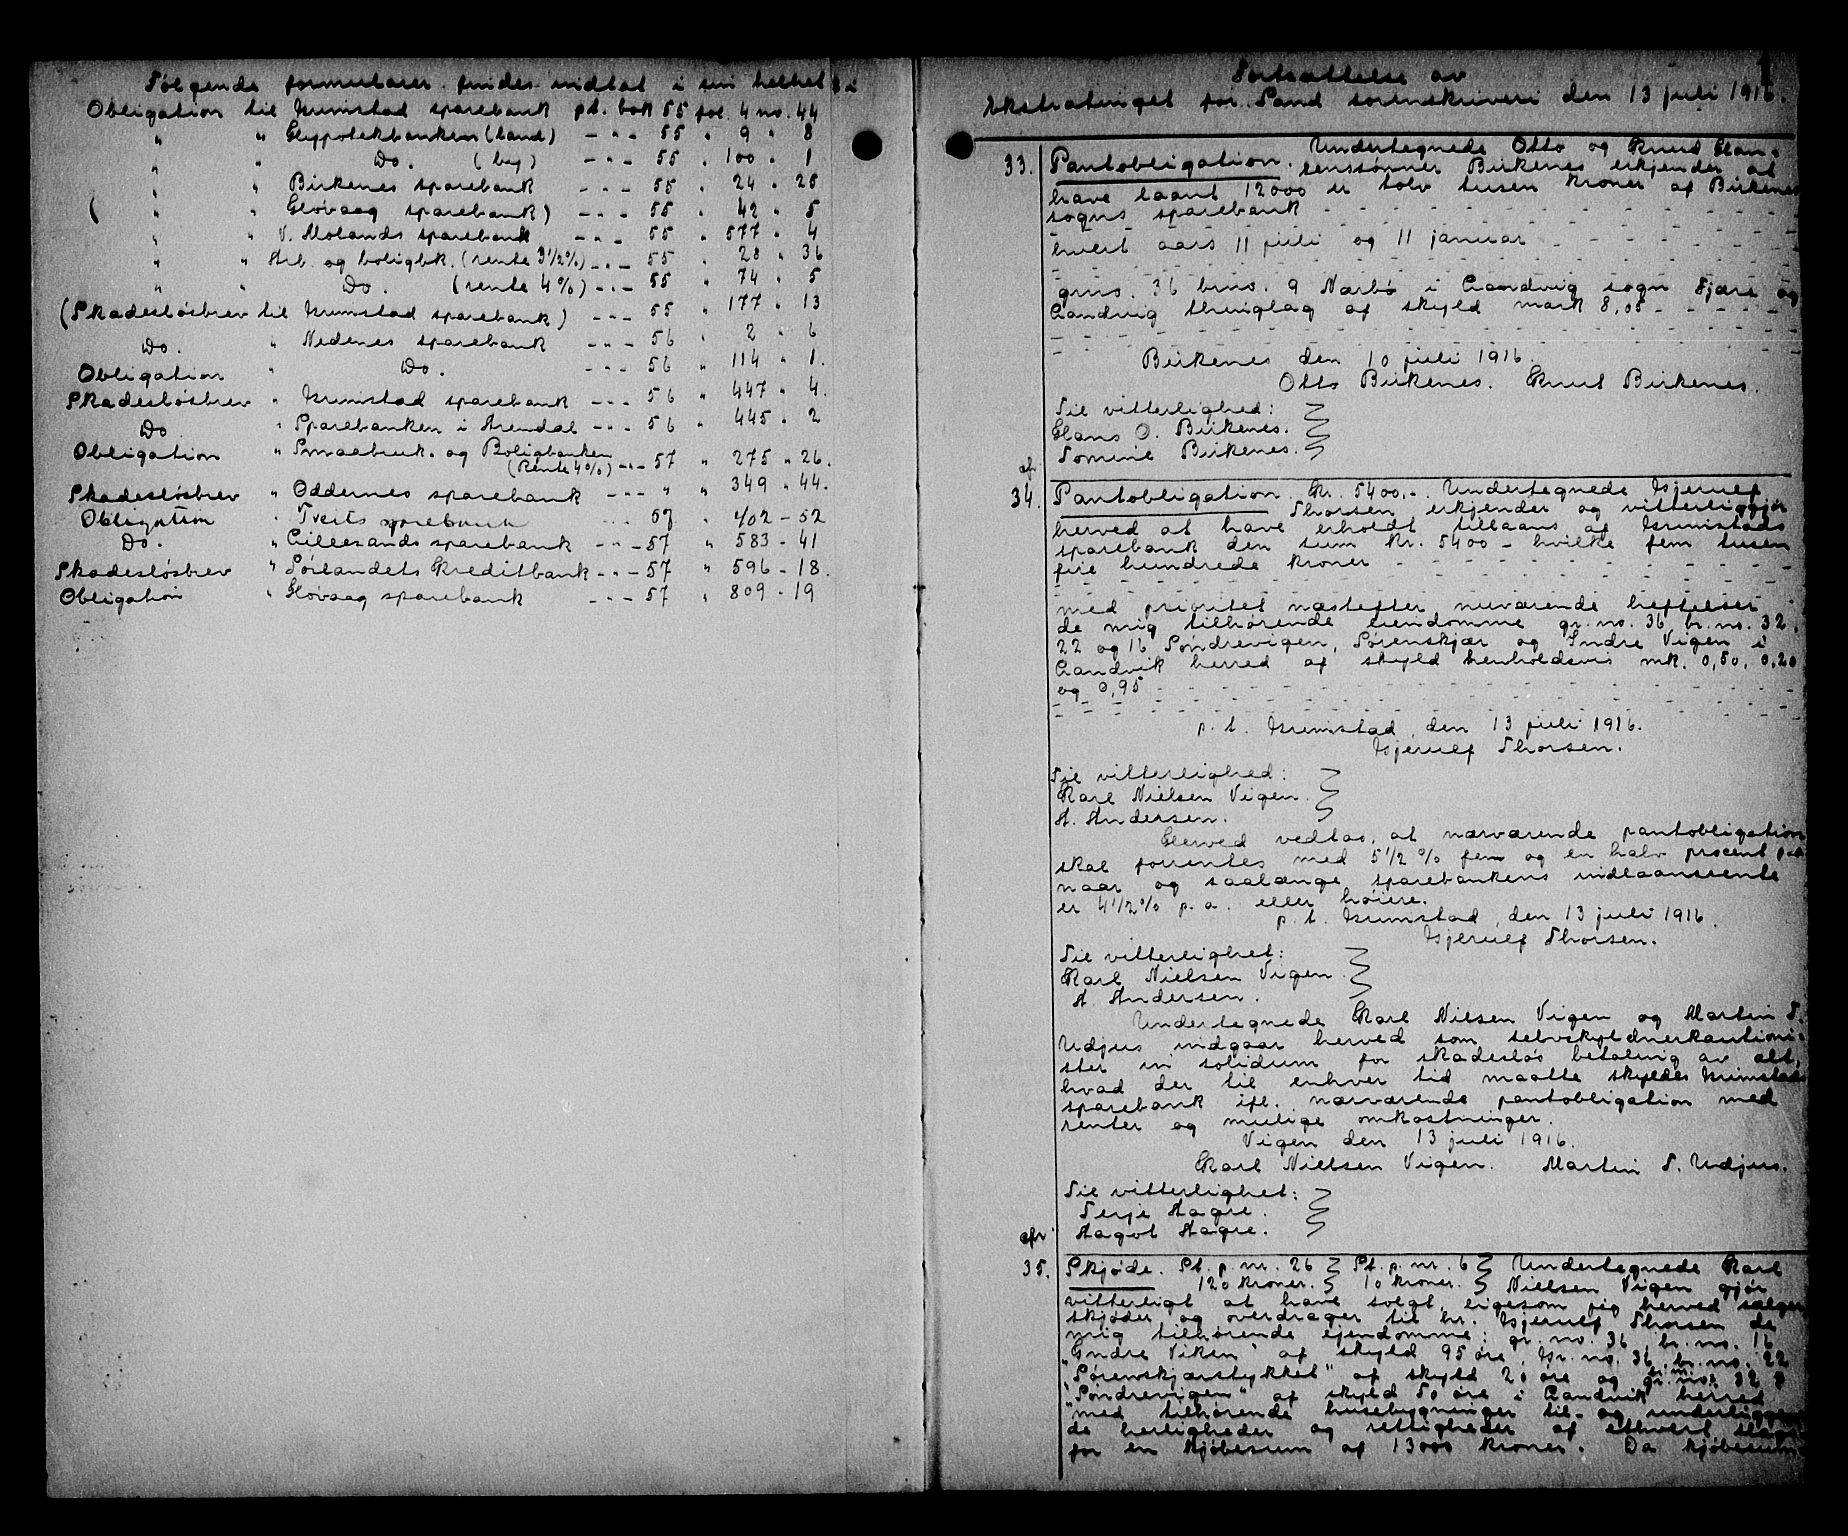 Følgende formularer findes indtat i sin helhet i
Obligation til Grimstad sparebank pt. bok 55 fol. 4 no. 44
" " Hypotekbanken (land) - " - 55 " 9 " 8
" " Do. (by) - " - 55 " 100 " 1
" " Birkenes sparebank - " - 55 " 24 " 25
( " " Høvaag sparebank) - " - 55 " 42 " 5
" " V. Molands sparebank - " - 55 " 577 " 4
" " Arb. og boligbk. (rente 3 1/2 %) - " - 55 " 28 " 36
" " Do. (rente 4 %) - " - 55 " 74 " 5
(Skadesløsbrev til Grimstad sparebank) - " - 55 " 177 " 13
Do. " Nedenes sparebank - " - 56 " 2 " 6
Obligation " Do. - " - 56 " 114 " 1.
Skadesløsbrev " Grimstad sparebank - " - 56 " 447 " 4.
Do " Sparebanken i Arendal - " - 56 " 445 " 2
Obligation " Smaabruk. og Boligbanken
(Rente 4 %) - " - 57 " 275 " 26.
Skadesløsbrev " Oddernes sparebank - " - " " 349 " 44.
Obligation " Tveits sparebank " " " 57 " 402 - 52
Do. " Lillesands sparebank - " - 57 " 583 - 41
Skadesløsbrev " Sørlandets Kreditbank - " - 57 " 596 - 18.
Obligation " Høvaag sparebank - " - 57 " 809 - 19
1
Fortsættelse av
Ekstratinget for Sand sorenskriveri den 13 juli 1916.
33. Pantobligation. Undertegnede Otto og Knud Han-
senssønner Birkenes erkjender at
have laant 12000 er tolv tusen kroner af Birkenes
sogns sparebank
hvert aars 11 juli og 11 januar
grno. 36 brno. 9 Nærbø i Landvig sogn Fjære og
Landvig thinglag af skyld mark 8,05
Birkenes den 10 juli 1916.
Otto Birkenes. Knut Birkenes.
Til vitterlighed:
Hans O. Birkenes.
Tomine Birkenes.
afr
34. Pantobligation. Kr. 5400.-. Undertegnede Gjerulf
Thorsen erkjender og vitterliggjør
herved at have erholdt tillaans af Grimstads
sparebank den sum Kr. 5400 - hvilke fem tusen
fire hundrede kroner
med prioritet næstefter nuværende heftelser
de mig tilhørende eiendomme gr. no. 36 br. no. 32,
22 og 16 Søndrevigen, Sørenskjær og Indre Vigen i
Landvik herred af skyld henholdsvis mk. 0,50, 0,20
og 0,95
p. t. Grimstad, den 13 juli 1916.
Gjerulf Thorsen.
Til vitterlighed:
Karl Nielsen Vigen.
A. Andersen.
Herved vedtas, at nærværende pantobligation
skal forrentes med 5 1/2 % fem og en halv procent p.a.
naar og saalænge sparebankens indlaansrente
er 4 1/2 % p. a. eller høiere.
p. t. Grimstad, den 13 juli 1916.
Gjerulf Thorsen.
Til vitterlighet:
Karl Nielsen Vigen
A. Andersen.
Undertegnede Karl Nilsen Vigen og Martin T.
Udjus indgaar herved som selvskyldnerkautioni-
ster in solidum for skadesløs betaling av alt,
hvad der til enhver tid maatte skyldes Grimstad
sparebank ifl. nærværende pantobligation med
renter og mulige omkostninger.
Vigen den 13 juli 1916.
Karl Nielsen Vigen. Martin T. Udjus.
Til vitterlighet:
Terje Aagre.
Aagot Aagre.
afr
35. Skjøde. St. p. nr. 26 St. p. nr. 6 Undertegnede Karl
120 kroner. 10 kroner. Nielsen Vigen gjør
vitterligt at have solgt, ligesom jeg herved sælger
skjøder og overdrager til hr. Gjerulf Thorsen de
mig tilhørende ejendomme: gr. no. 36 br. no. 16
"Indre Viken" af skyld 95 øre, Gr. no. 36, br. no. 22
"Sørenskjærstykket" af skyld 20 øre og gr. no. 32
"Søndrevigen" af skyld 50 øre i Landvik herred
med tilhørende husebygninger til- og underliggen-
de herligheder og rettigheder af ethvert slags
for en kjøbesum af 13000 kroner. Da kjøbesum